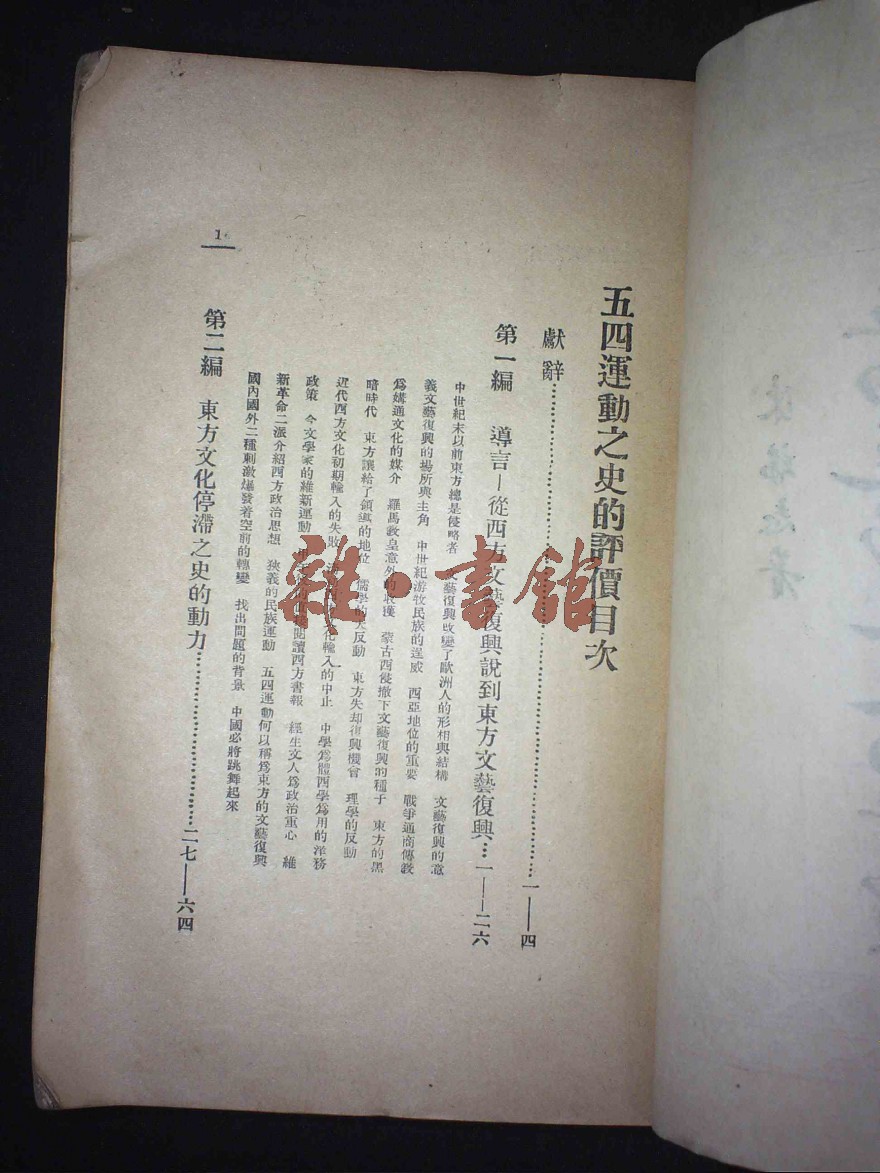 五四運動之史的評價目次
獻辭……一——四
第一編 導言—從西方文藝復興說到東方文藝復興…一——二六
中世紀末以前東方總是侵略者 文藝復興改變了歐洲人的形相與結構 文藝復興的意
義文藝復興的場所與主角 中世紀游牧民族的逞威 西亞地位的重要 戰爭通商傳教
爲媾通文化的媒介 羅馬教皇意外的收獲 蒙古西侵撤下文藝復興的種子 東方的黑
暗時代 東方讓給了領導的地位 儒學的大反動 東方失却復興機會 理學的反動
近代西方文化初期輸入的失敗 化輸入的中止 中學爲體西學爲用的洋務
政策 今文學家的維新運動 閱讀西方書報 經生文人爲政治重心 維
新革命二派介紹西方政治思想 狹義的民族運動 五四運動何以稱爲東方的文藝復興
國內國外二種刺激爆發着空前的轉變 找出問題的背景 中國必將跳舞起來
第二編 東方文化停滯之史的動力……二七——六四
1
雜·書館